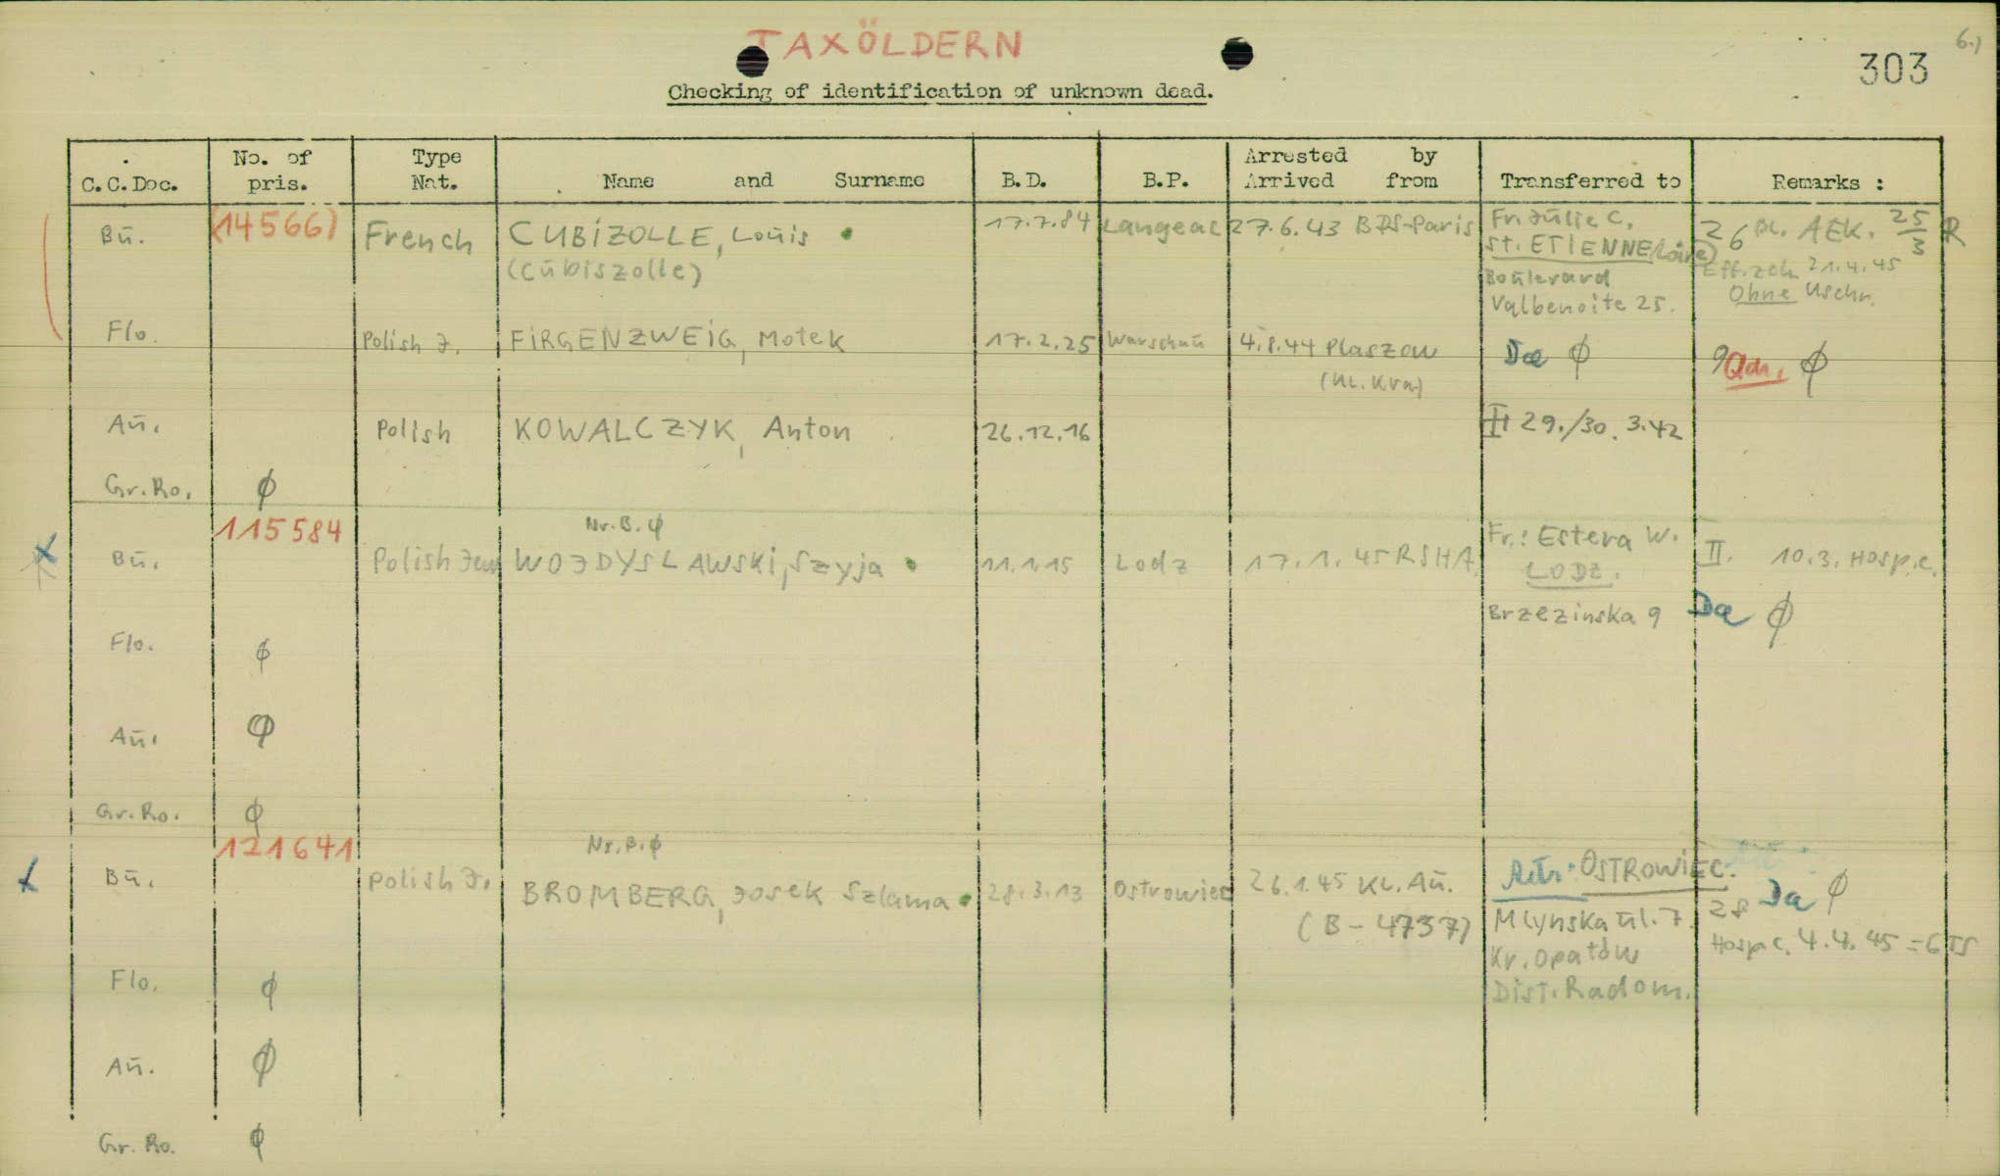 TAXÖLDERN
6.)
303
Checking of identification of unknown dead.
C.C.Doc. No. of pris. Type Nat. Name and Surname B.D. B.P. Arrested by Arrived from Transferred to Remarks :
(14566)
Bū. French CUBIZOLLE, Louis 17.7.84 Langeac 27.6.43 BDS-Paris Fr. Julie C. 26 Bl. AEK. 25/3 R
(Cubiszolle) St. ETIENNE (Loire) Eff. 21.4.45
Boulevard Ohne Uschr.
Valbenoite 25.
Flo. Polish J. FIRGENZWEIG, Motek 17.2.25 Warschau 4.8.44 Plaszow Da ϕ ϕ
(KL. Kra)
Aū. Polish KOWALCZYK, Anton 26.12.16 29./30.3.42
Gr.Ro. ϕ
115584 Nr.B.ϕ
Bū. Polish Jew WOJDYSLAWSKI, Szyja 11.1.15 Lodz 17.1.45 RSHA Fr.: Estera W. II. 10.3. Hosp.c.
LODZ.
Brzezinska 9 Da ϕ
Flo. ϕ
Aū. ϕ
Gr.Ro. ϕ
121641 Nr.B.ϕ
Bū. Polish J. BROMBERG, Josek Szlama 28.3.13 Ostrowiec 26.1.45 KL. Aū. OSTROWIEC. Da ϕ
(B-4737) Mlynska ūl. 7. 28
Kr. Opatów Hosp c. 4.4.45 =
Dist. Radom.
Flo. ϕ
Aū. ϕ
Gr. Ro. ϕ